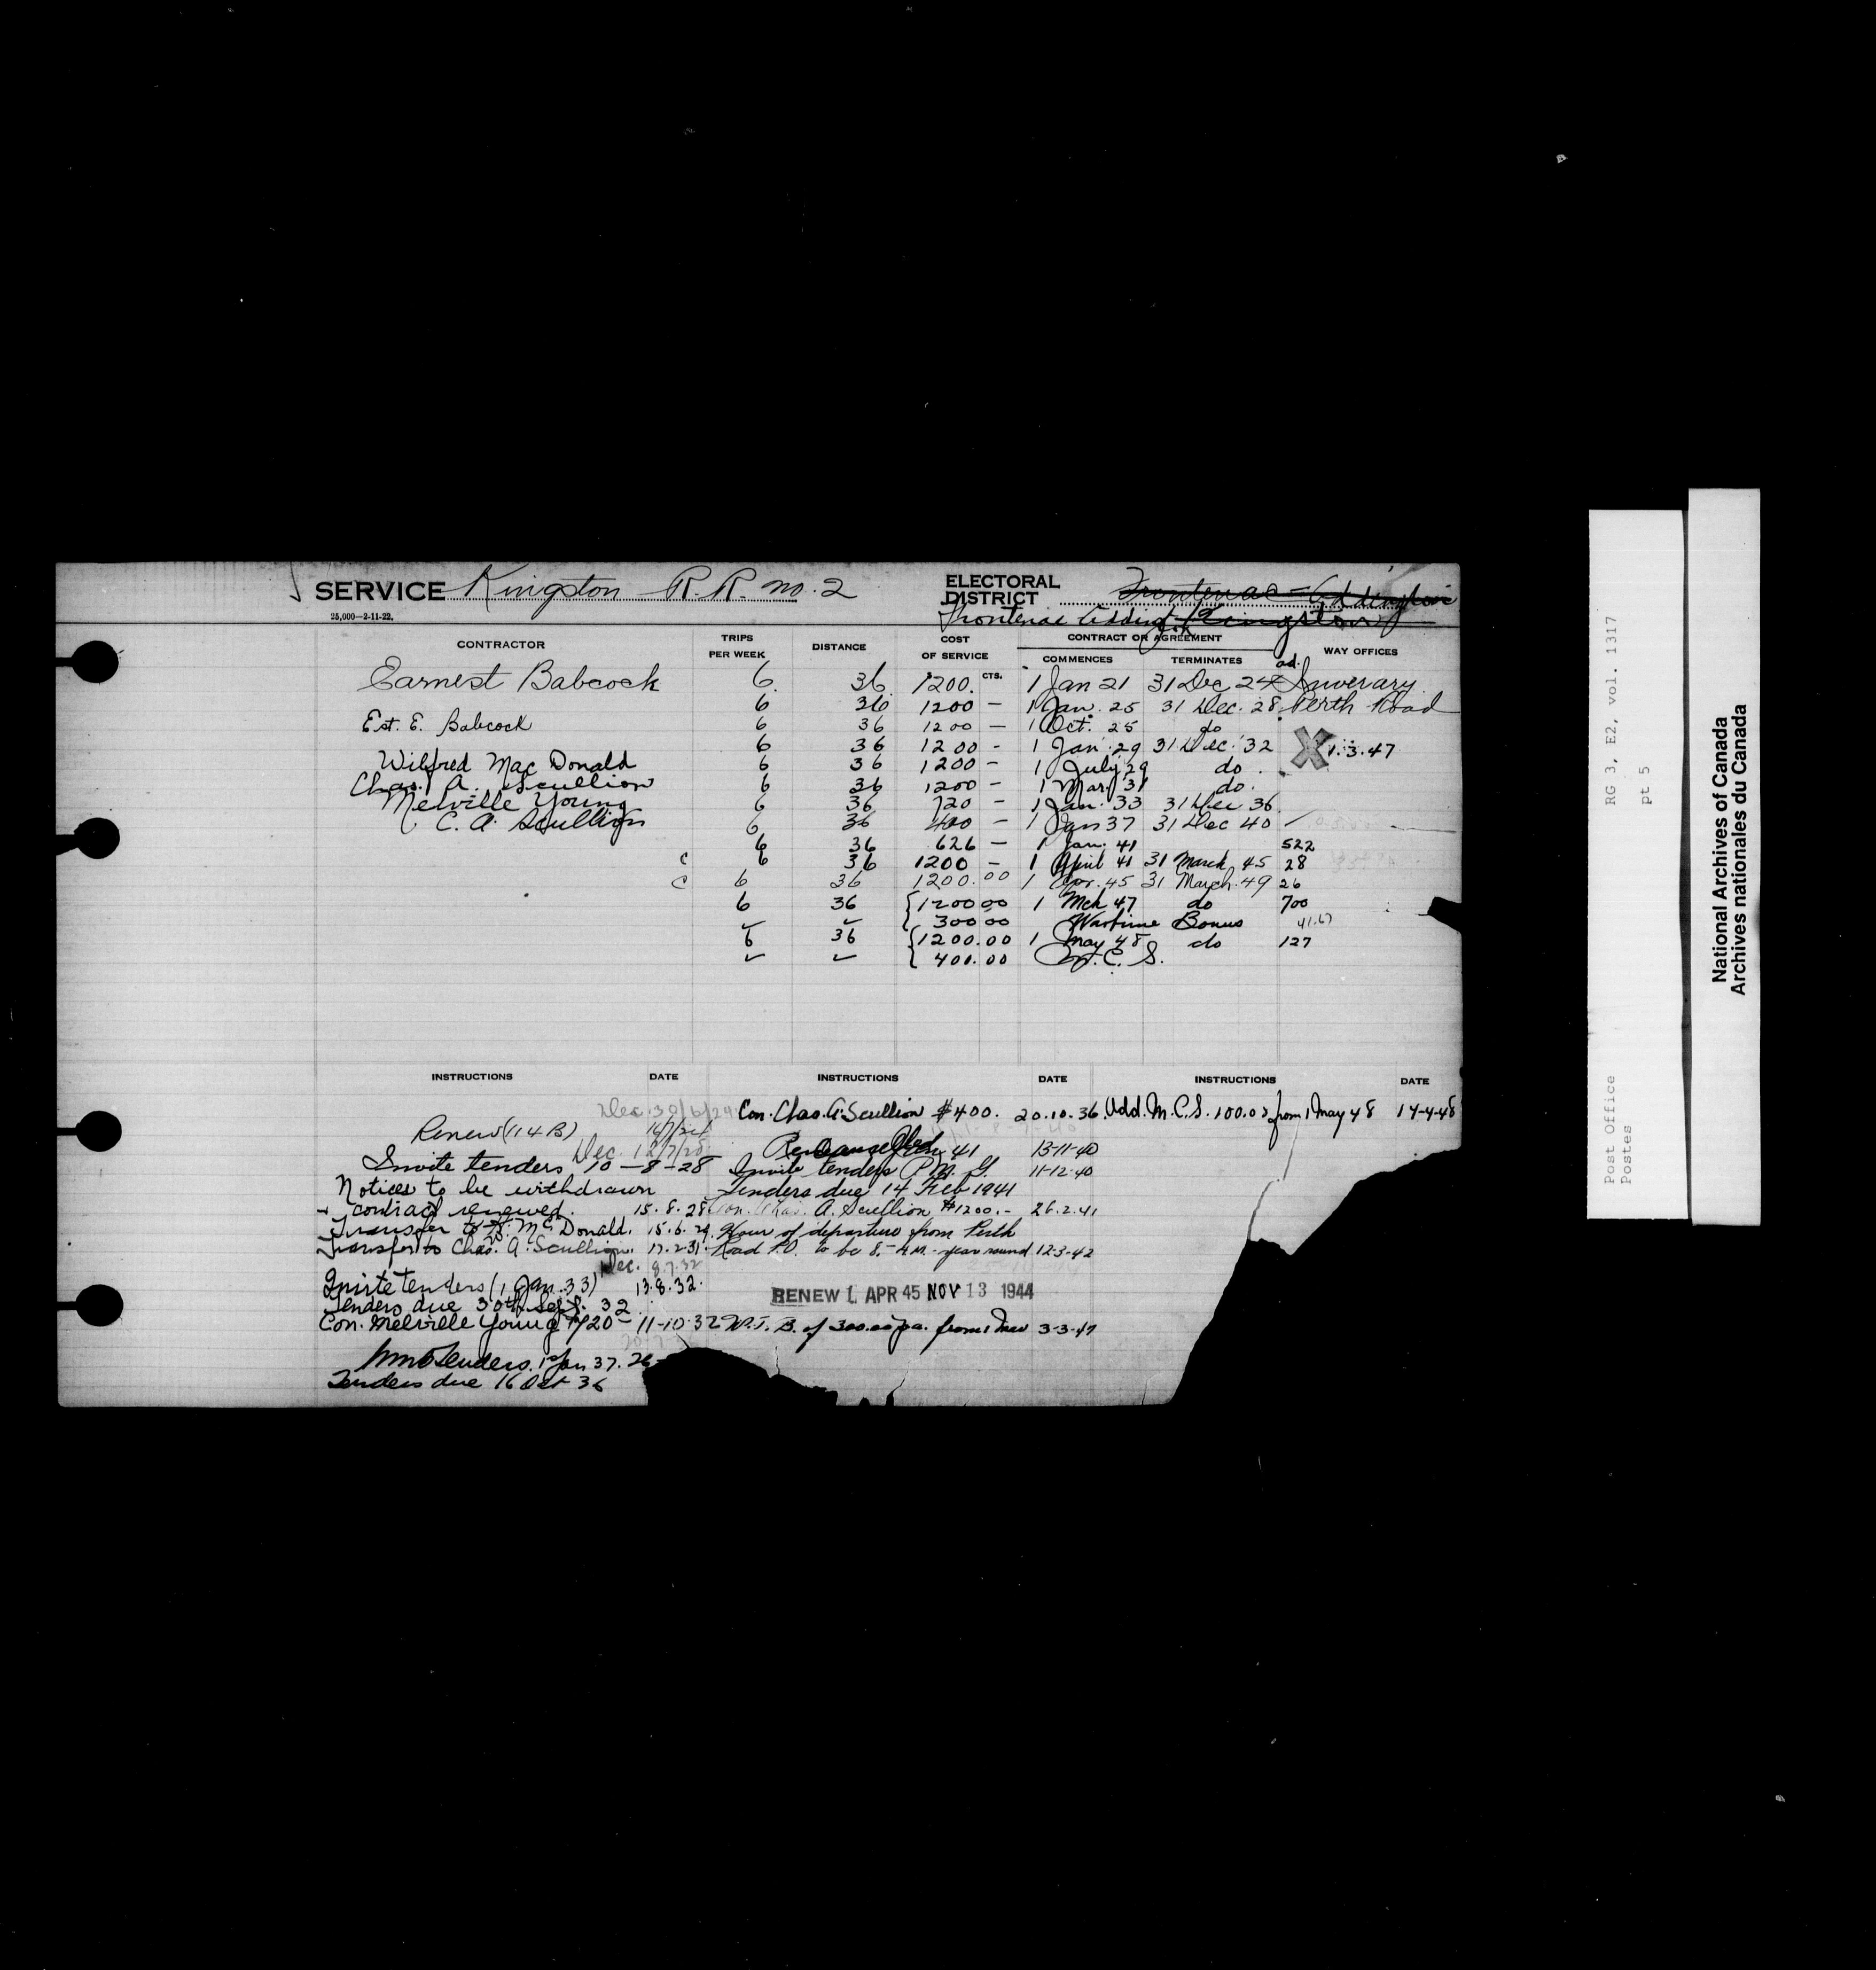 SERVICE Kingston R.R. no. 2
ELECTORAL DISTRICT Frontenac-Addington
Frontenac Addingt Kingston
25,000—2-11-22.
CONTRACTOR TRIPS PER WEEK DISTANCE COST OF SERVICE CONTRACT OR AGREEMENT WAY OFFICES
CTS. COMMENCES TERMINATES ad.
Earnest Babcock 6 36 1200. 1 Jan 21 31 Dec 24 Inverary
6 36 1200 — 1 Jan. 25 31 Dec. 28 Perth Road
Est. E. Babcock 6 36 1200 — 1 Oct. 25 do
6 36 1200 - 1 Jan 29 31 Dec. 32 X 1.3.47
Wilfred Mac Donald 6 36 1200 - 1 July 29 do.
Chas. A. Scullion 6 36 1200 - 1 Mar. 31 do.
Melville Young 6 36 720 - 1 Jan. 33 31 Dec 36
C. A. Scullion 6 36 400 - 1 Jan 37 31 Dec 40
6 36 626 — 1 Jan. 41 522
c 6 36 1200 — 1 April 41 31 March 45 28
c 6 36 1200.00 1 Apr. 45 31 March 49 26
6 36 {1200 00 1 Mch 47 do 700
✓ ✓ 300 00 Wartime Bonus 41.67
6 36 {1200.00 1 May 48 do 127
✓ ✓ 400.00 M. C. S.
INSTRUCTIONS DATE INSTRUCTIONS DATE INSTRUCTIONS DATE
Dec. 30/6/24
Renew (114B)
Dec. 12/7/28
Invite tenders 10-8-28
Notices to be withdrawn
contract renewed. 15.8.28
Transfer to W. McDonald. 15.6.29
Transfer to Chas. A. Scullion. 17.2.31
Dec. 8.7.32
Invite tenders (1 Jan. 33) 13.8.32.
Tenders due 30th Sept. 32
Con. Melville Young $720- 11-10-32
Tenders. 1 Jan 37. 26-
Tenders due 16 Oct 36
Con. Chas. A. Scullion $400. 20.10.36
41 13-11-40
Invite tenders P.M.G. 11-12-40
Tenders due 14 Feb 1941
Con. Chas. A. Scullion $1200.- 26.2.41
Hour of departure from Perth
Road P.O. to be 8.- A.M. - year round 12-3-42
RENEW 1 APR 45 NOV 13 1944
W.T.B. of 300.00 pa. from 1 Mar 3-3-47
Add. M.C.S. 100.00 from 1 May 48 14-4-48
RG 3, E2, vol. 1317
pt 5
Post Office
Postes
National Archives of Canada
Archives nationales du Canada